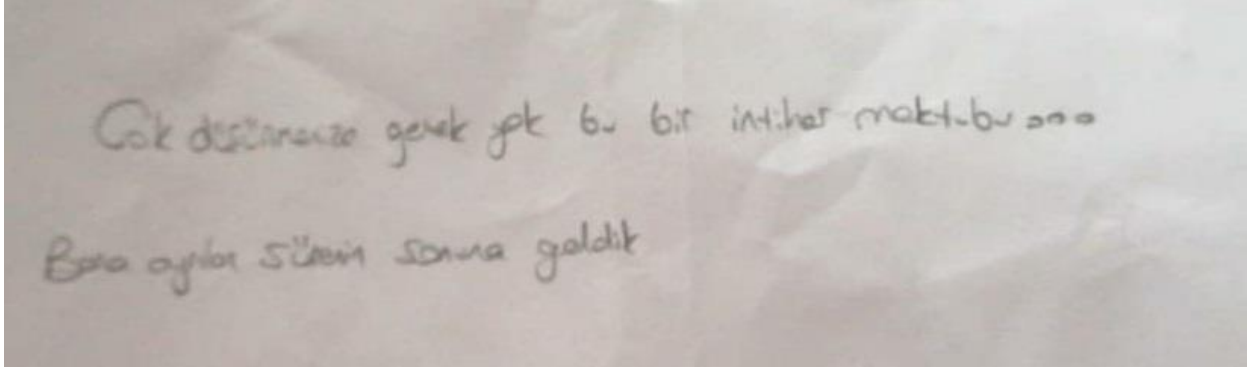 Çok düşünmenize gerek yok bu bir intihar mektubu...
Bana ayrılan sürenin sonuna geldik